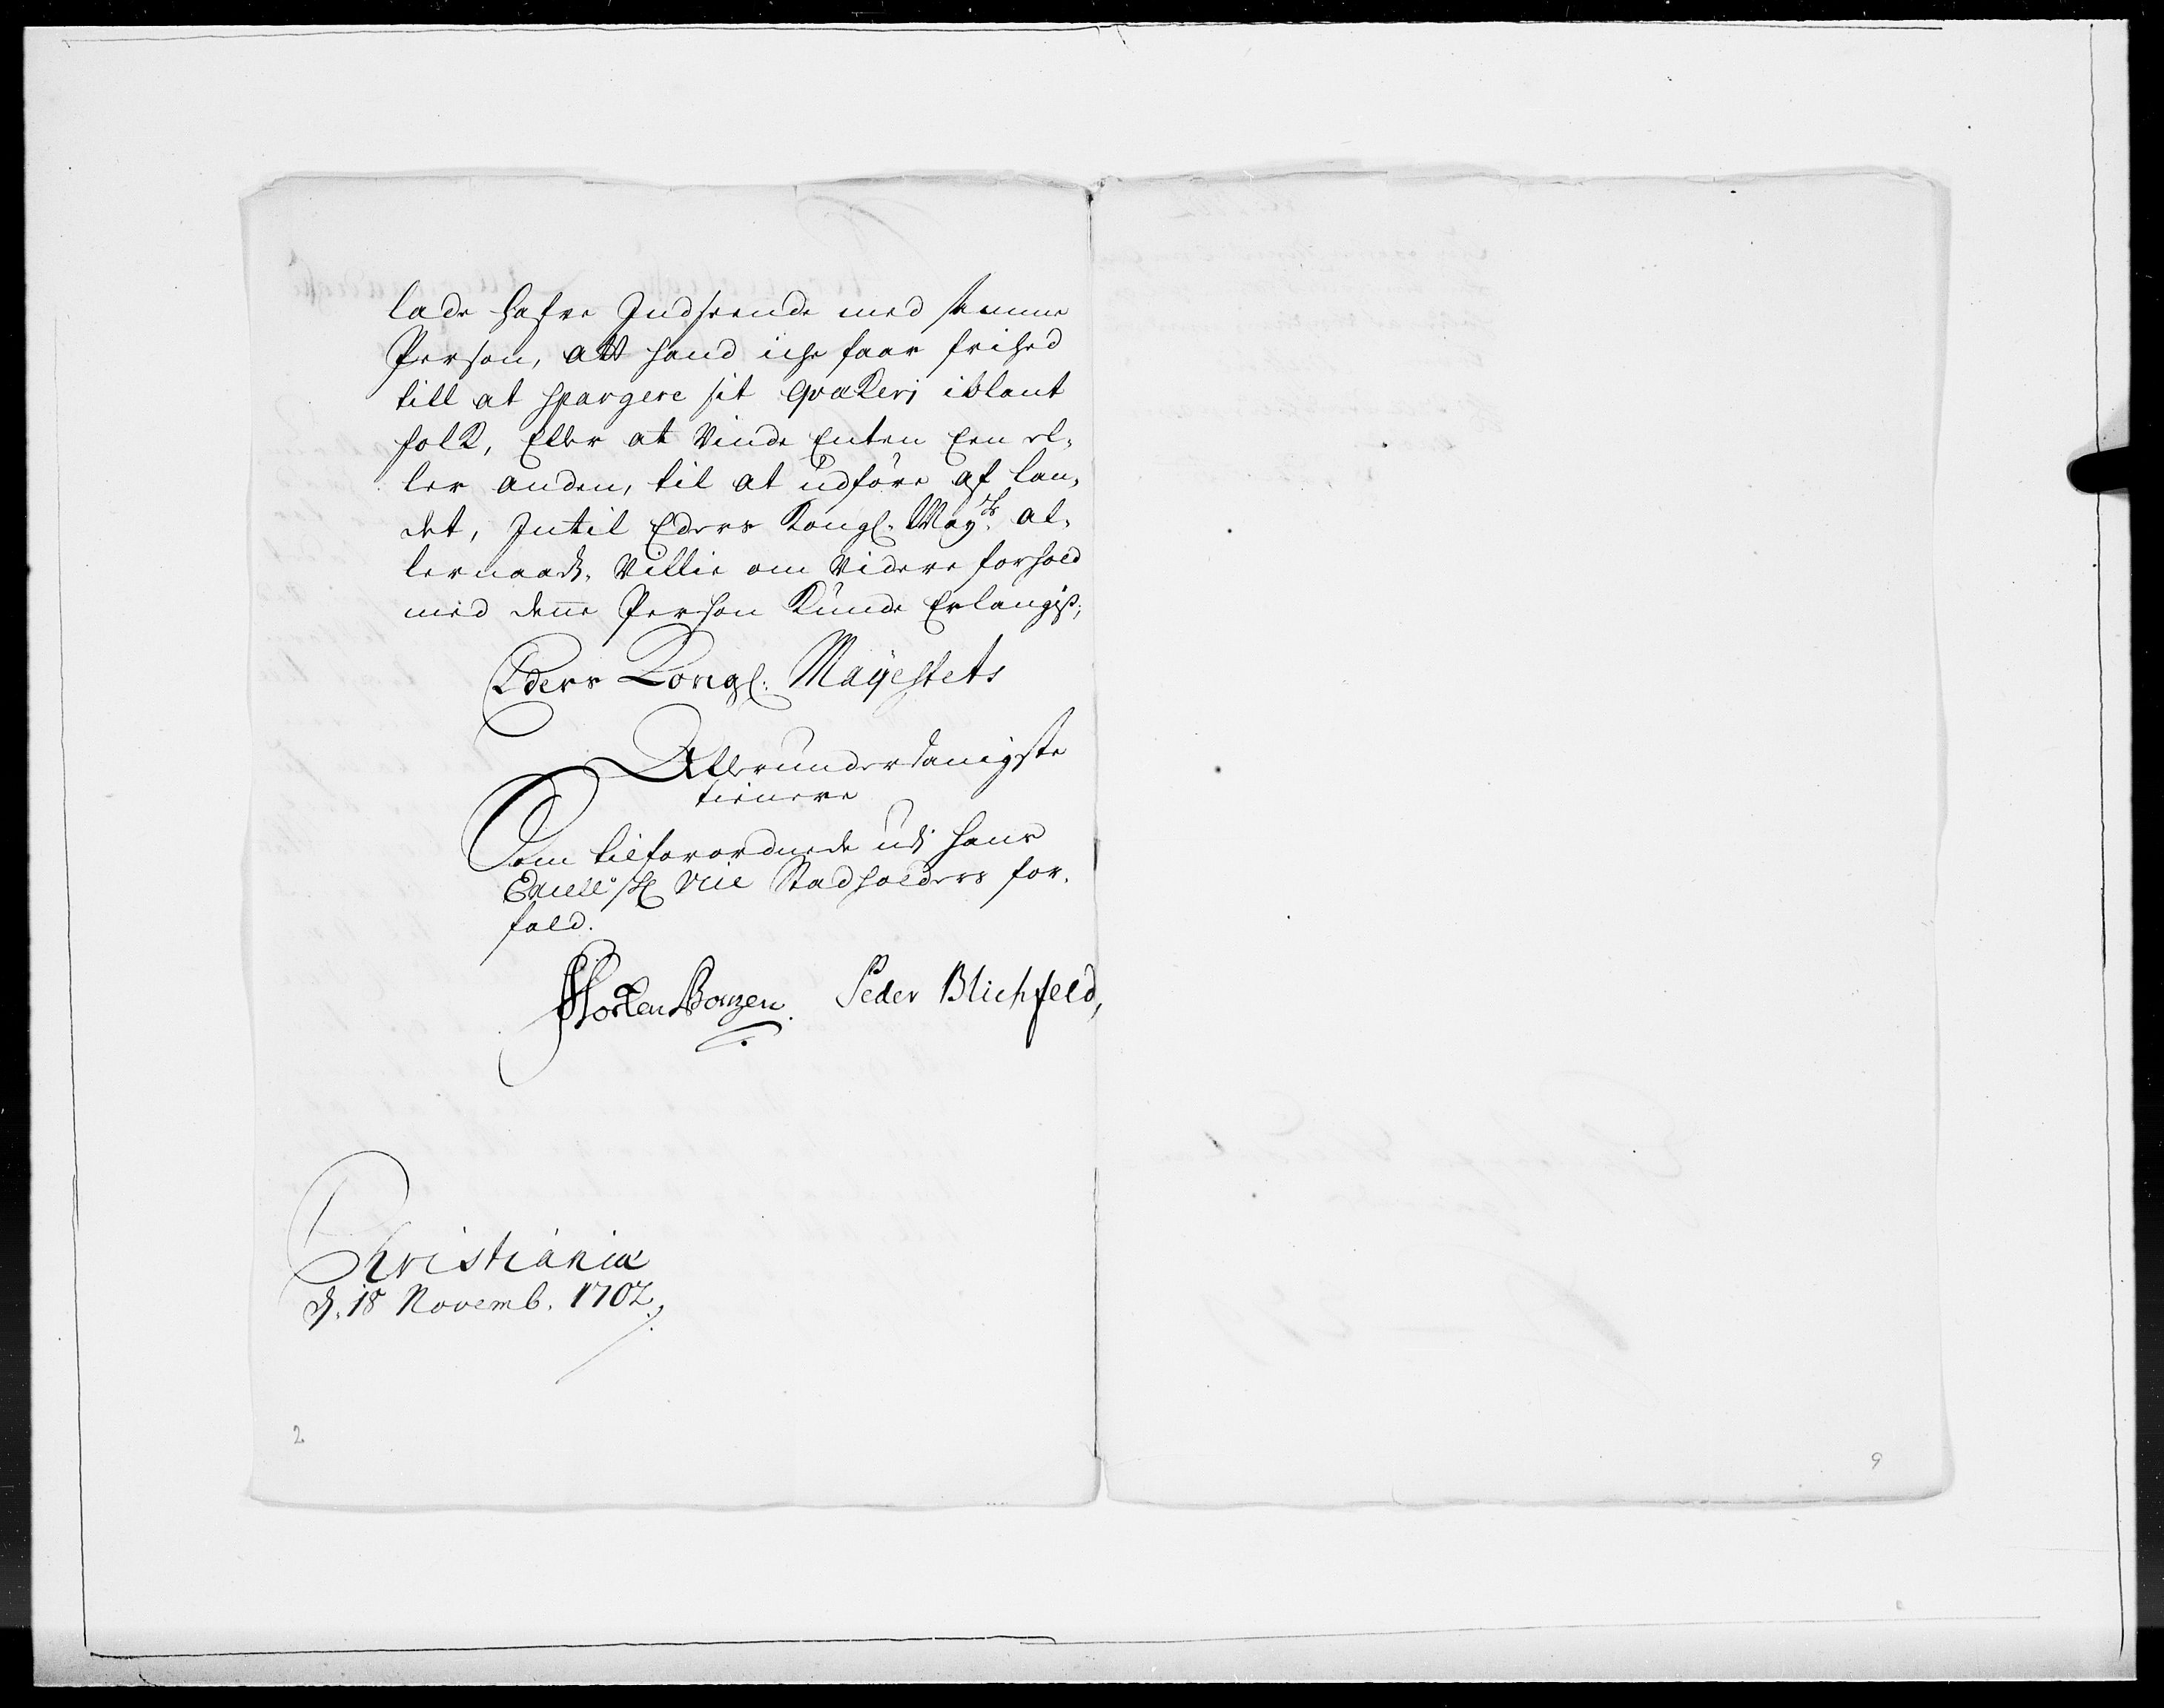 lade hafve Indseende med samme
Person, att hand iche faar frihed
till at spargere sit qvakeri iblant
folk, Eller at Vinde Enten Een el-
ler anden, til at udföre af lan-
det, Intil Eders Kongl. May.ts al-
lernaads. Villie om Videre forhold
med denne Person kunde Erlangis;
Eders Kongl: Mayestets
Allerunderdanigste
tienere
Som tilforordnede udi hans
Excell: Hr Vice Stadholders for-
fald.
Peder Blichfeld,
Christiania
d. 18 Novemb. 1702.
2
9